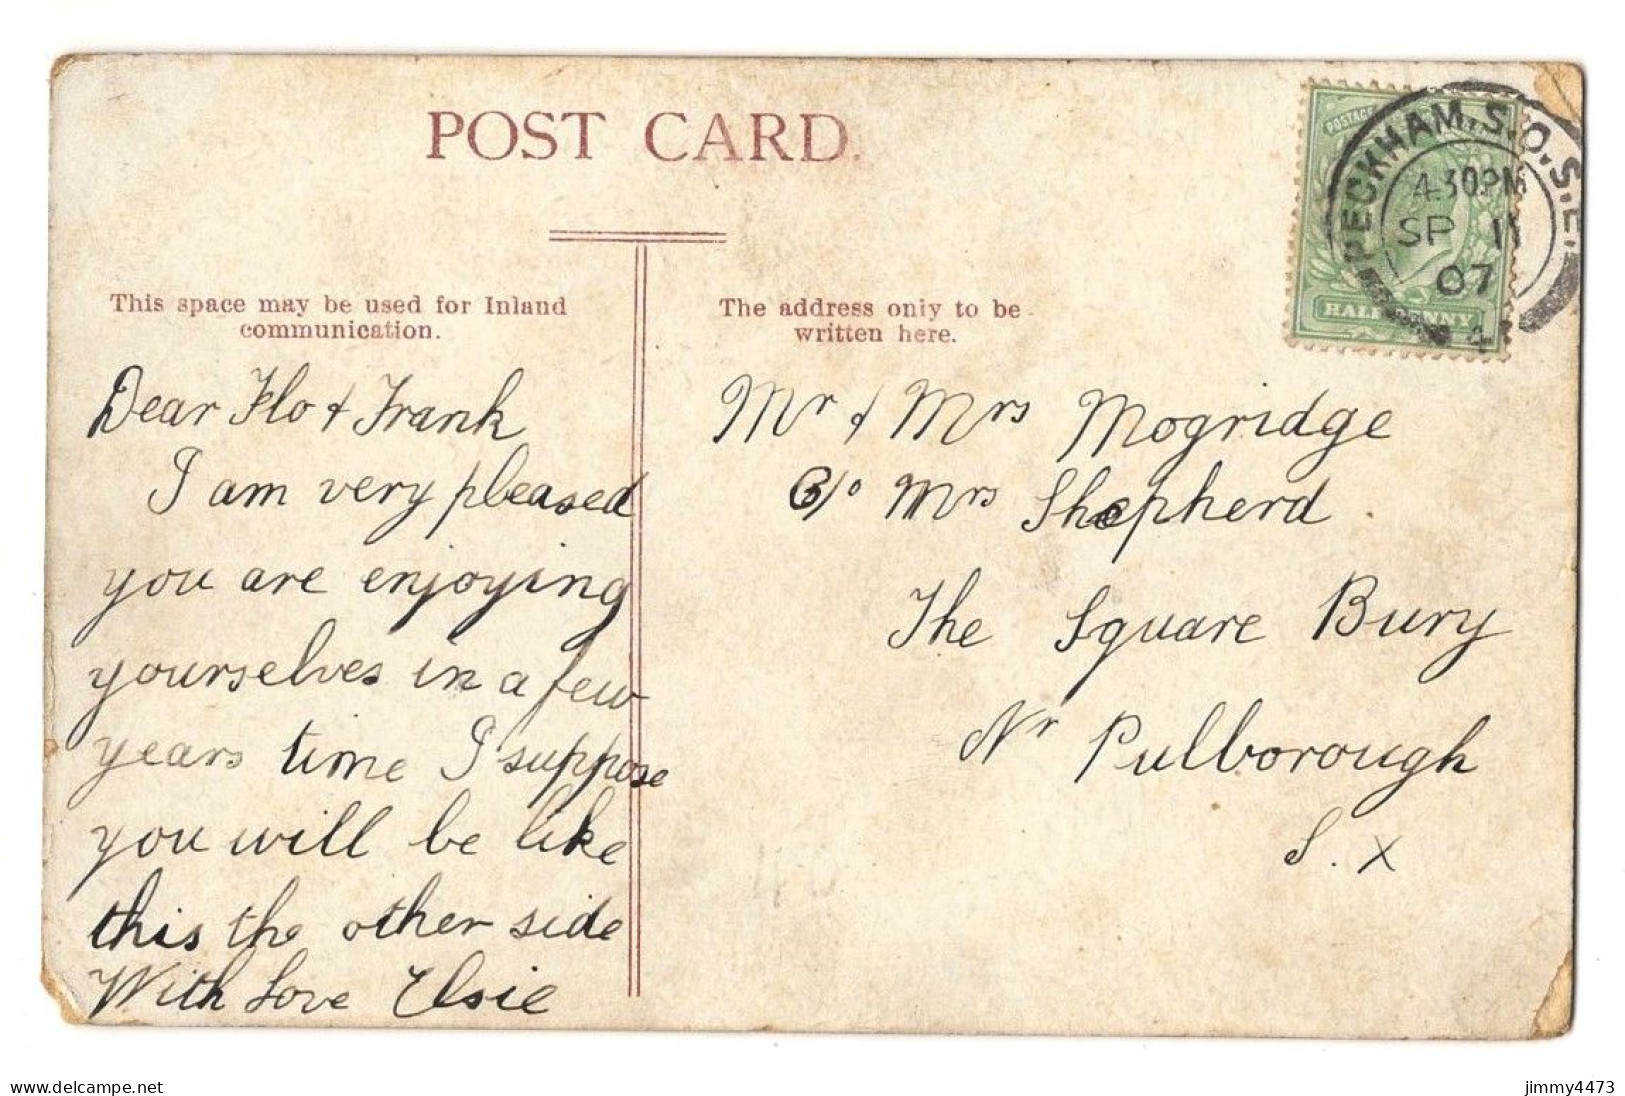 POST CARD.
This space may be used for Inland
communication.
The address only to be
written here.
Dear Flo & Frank
I am very pleased
you are enjoying
yourselves in a few
years time I suppose
you will be like
this the other side
With Love Elsie
Mr & Mrs Mogridge
C/o Mrs Shepherd
The Square Bury
Nr Pulborough
S. x
POSTAGE
HALFPENNY
PECKHAM.S.O.S.E.
4.30PM
SP 11
07
4
www.delcampe.net
jimmy4473